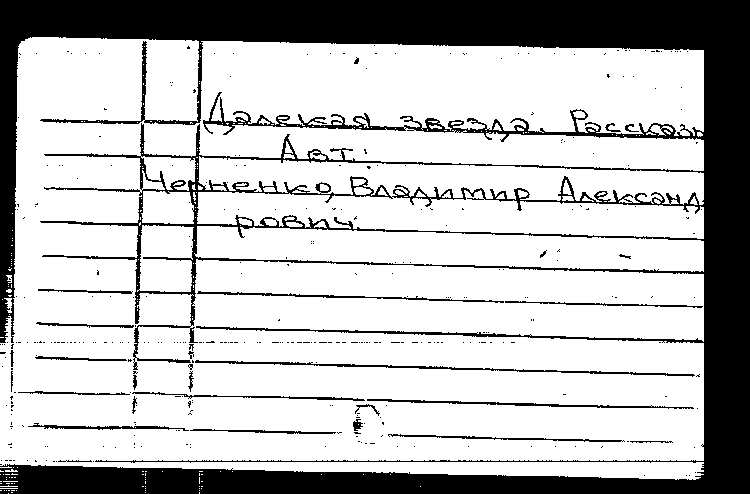 Далекая звезда. Рассказы
Авт:
Черненко, Владимир Александ-
рович.